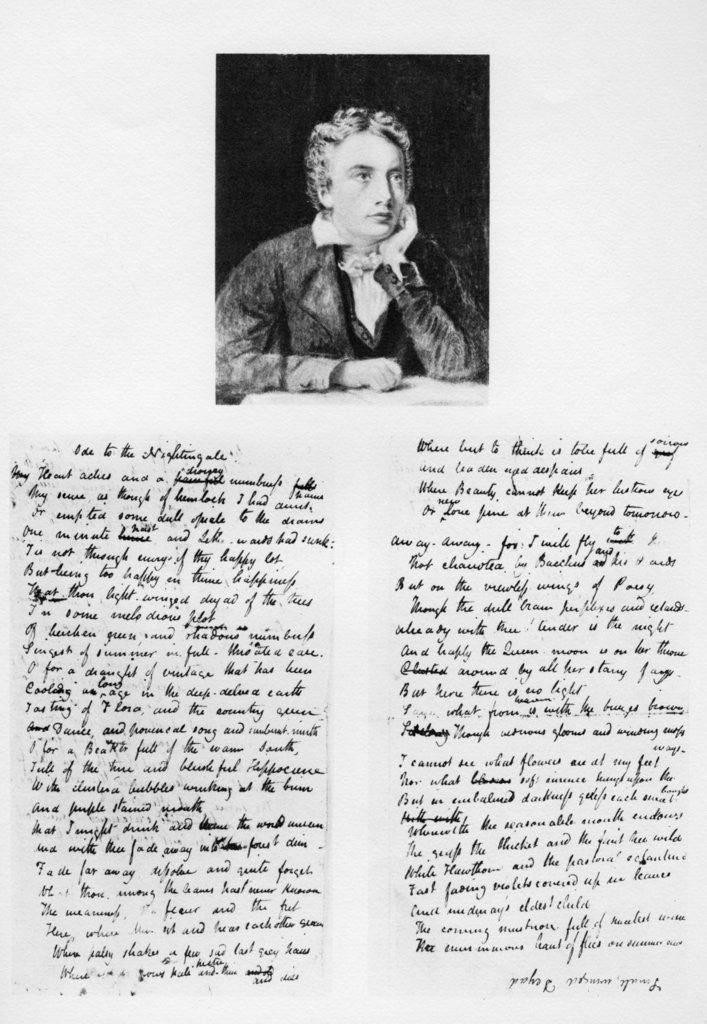 Ode to the Nightingale
My Heart aches and a drowsy painful numbness falls
My sense as though of hemlock I had drunk
Or emptied some dull opiate to the drains
One minute past and Lethe-wards had sunk:
Tis not through envy of thy happy lot
But being too happy in thine happiness
That thou light-winged dryad of the trees
In some melodious plot
Of beechen green and shadows numberless
Singest of summer in full-throated ease.
O for a draught of vintage that has been
Cooling an age in the deep-delved earth
Tasting of Flora and the country green
And Dance, and provencal song and sunburnt mirth
O for a Beaker full of the warm South,
Full of the true and blushful Hippocrene
With clustered bubbles winking at the brim
And purple stained mouth
That I might drink and leave the world unseen
And with thee fade away into the forest dim-
Fade far away dissolve and quite forget
What thou among the leaves hast never known
The weariness, the fever and the fret
Here, where Men sit and hear each other groan
Where palsy shakes a few sad last grey hairs
Where grows pale and thin and dies
Where but to think is to be full of sorrow
And leaden eyed despairs
Where Beauty cannot keep her lustrous eyes
Or new Love pine at them beyond tomorrow-
Away-Away- for I will fly to thee
Not charioted by Bacchus and his Pards
But on the viewless wings of Poesy
Though the dull brain perplexes and retards-
Already with thee! tender is the night
And haply the Queen-moon is on her throne
Clustered around by all her starry fays-
But here there is no light
Save what from heaven is with the breezes blown
Through verdurous glooms and winding mossy
ways-
I cannot see what flowers are at my feet
Nor what soft incense hangs upon the boughs
But in embalmed darkness guess each sweet
Wherewith the seasonable month endows
The grass the thicket and the fruit tree wild
White Hawthorn and the pastoral eglantine
Fast fading violets covered up in leaves
And midmay's eldest child
The coming muskrose full of sweetest wine
The murmurous haunt of flies on summer eves
Small, winged Dryad